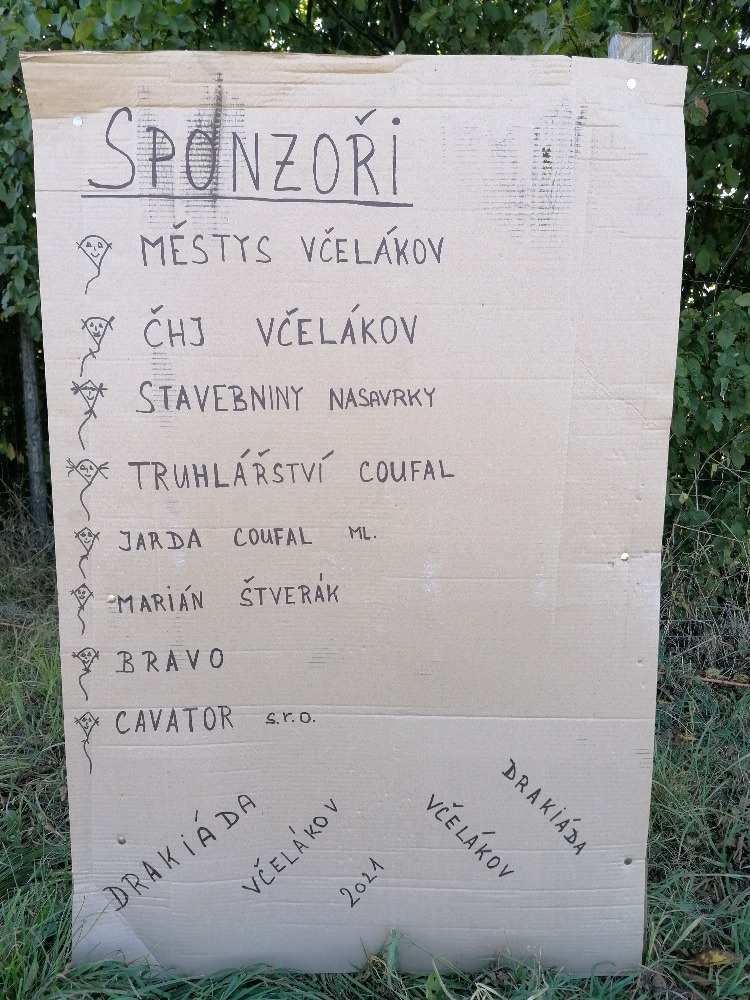 SPONZOŘi
MĚSTYS VČELÁKOV
ČHJ VČELÁKOV
STAVEBNINY NASAVRKY
TRUHLÁŘSTVÍ COUFAL
JARDA COUFAL ML.
MARiÁN ŠTVERÁK
BRAVO
CAVATOR s.r.o.
DRAKiÁDA
VČELÁKOV
2021
VČELÁKOV
DRAKiÁDA